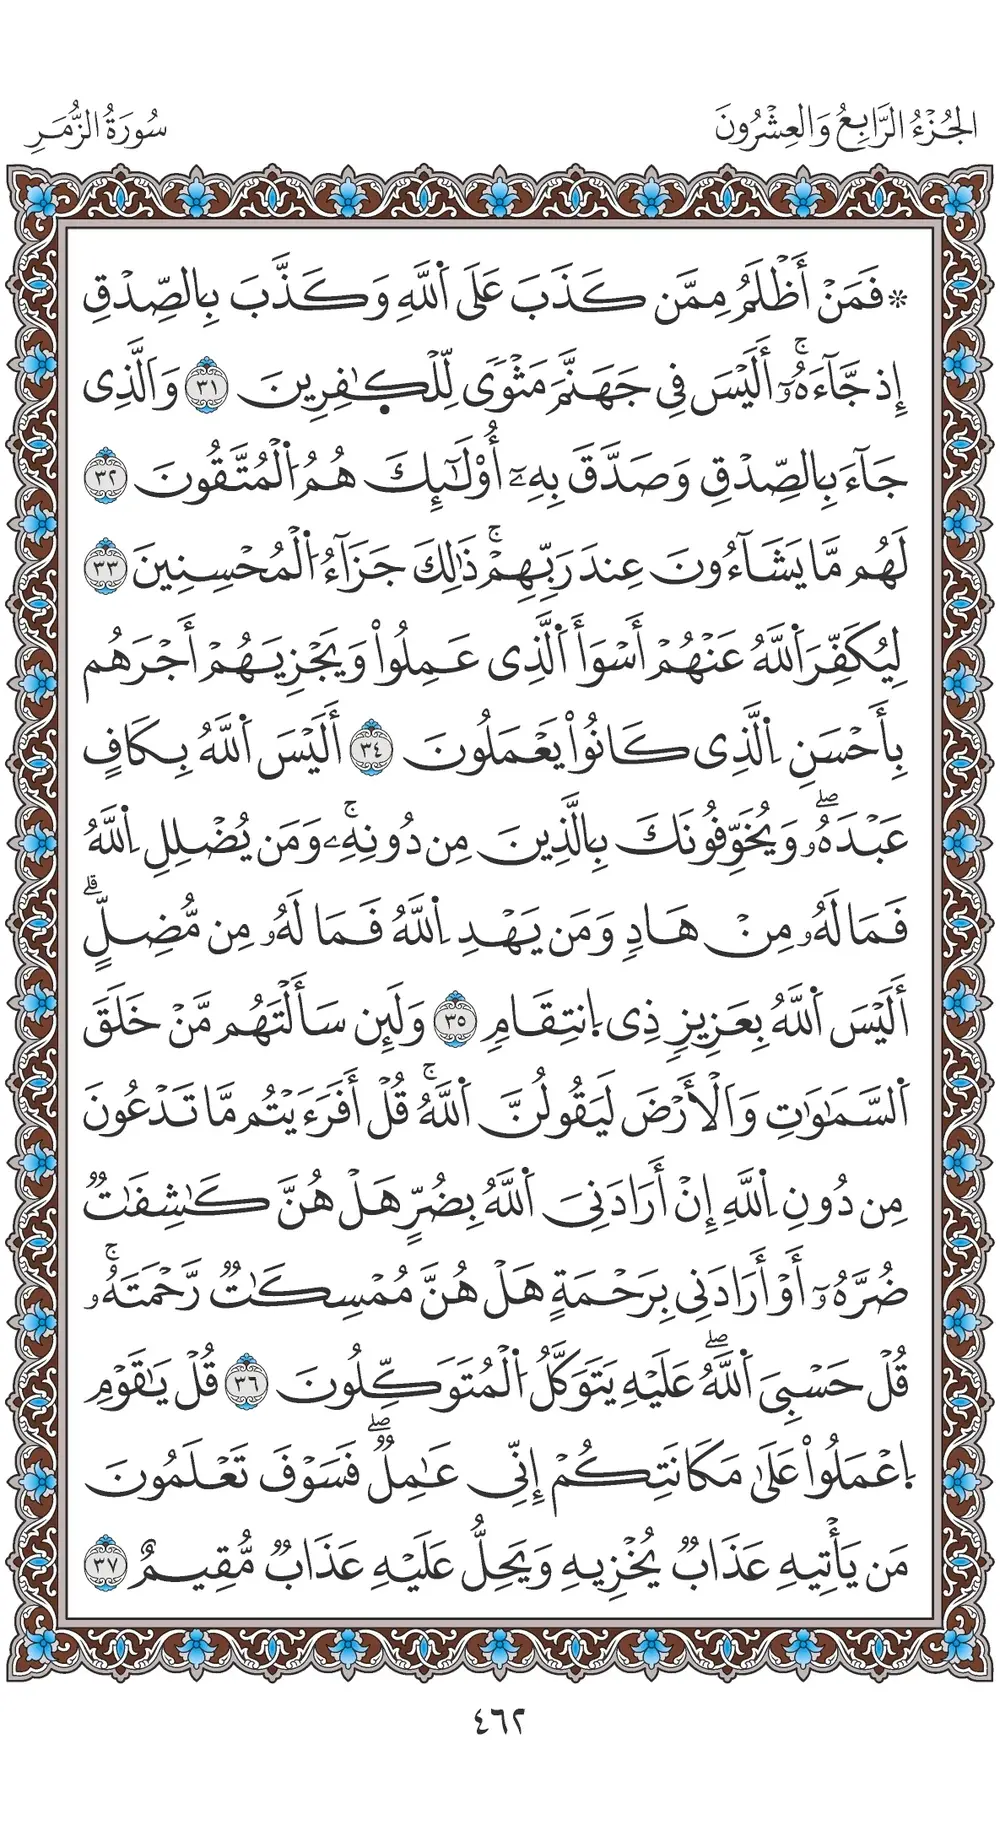 الجُزْءُ الرَّابِعُ وَالعِشْرُونَ
سُورَةُ الزُّمَرِ
۞ فَمَنْ أَظْلَمُ مِمَّن كَذَبَ عَلَى اَ۬للَّهِ وَكَذَّبَ بِالصِّدْقِ
إِذ جَّآءَهُۥٓۚ أَلَيْسَ فِي جَهَنَّمَ مَثْوٗى لِّلْكٜ۪فِرِينَ ٣١ وَالَّذِى
جَآءَ بِالصِّدْقِ وَصَدَّقَ بِهِۦٓ أُوْلَٰٓئِكَ هُمُ اُ۬لْمُتَّقُونَ ٣٢
لَهُم مَّا يَشَآءُونَ عِندَ رَبِّهِمْۚ ذَٰلِكَ جَزَآءُ اُ۬لْمُحْسِنِينَ ٣٣
لِيُكَفِّرَ اَ۬للَّهُ عَنْهُمْ أَسْوَأَ اَ۬لَّذِى عَمِلُواْ وَيَجْزِيَهُمْ أَجْرَهُم
بِأَحْسَنِ اِ۬لَّذِى كَانُواْ يَعْمَلُونَ ٣٤ أَلَيْسَ اَ۬للَّهُ بِكَافٍ
عَبْدَهُۥۖ وَيُخَوِّفُونَكَ بِالَّذِينَ مِن دُونِهِۦۚ وَمَن يُضْلِلِ اِ۬للَّهُ
فَمَا لَهُۥ مِنْ هَادٖ وَمَن يَهْدِ اِ۬للَّهُ فَمَا لَهُۥ مِن مُّضِلٍّۗ
أَلَيْسَ اَ۬للَّهُ بِعَزِيزٖ ذِى اِ۪نتِقَامٖ ٣٥ وَلَئِن سَأَلْتَهُم مَّنْ خَلَقَ
اَ۬لسَّمَٰوَٰتِ وَالْأَرْضَ لَيَقُولُنَّ اَ۬للَّهُۚ قُلْ أَفَرَءَيْتُم مَّا تَدْعُونَ
مِن دُونِ اِ۬للَّهِ إِنْ أَرَادَنِيَ اَ۬للَّهُ بِضُرٍّ هَلْ هُنَّ كَٰشِفَٰتٞ
ضُرَّهُۥٓ أَوْ أَرَادَنِي بِرَحْمَةٍ هَلْ هُنَّ مُمْسِكَٰتٞ رَّحْمَتَهُۥۚ
قُلْ حَسْبِيَ اَ۬للَّهُۖ عَلَيْهِ يَتَوَكَّلُ اُ۬لْمُتَوَكِّلُونَ ٣٦ قُلْ يَٰقَوْمِ
اِ۪عْمَلُواْ عَلَىٰ مَكَانَتِكُمْ إِنِّي عَٰمِلٞۖ فَسَوْفَ تَعْلَمُونَ
مَن يَأْتِيهِ عَذَابٞ يُخْزِيهِ وَيَحِلُّ عَلَيْهِ عَذَابٞ مُّقِيمٌ ٣٧
٤٦٢